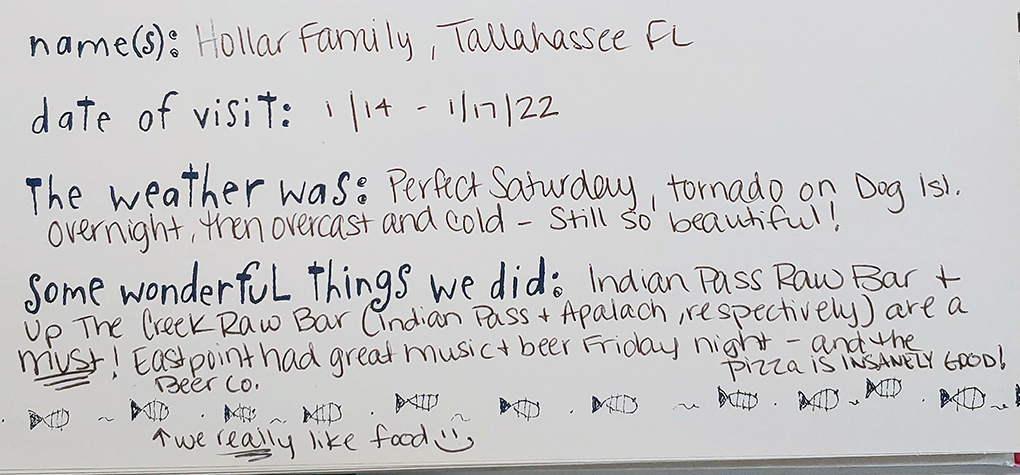 name(s): Hollar Family, Tallahassee FL
date of visit: 1/14 - 1/17/22
The weather was: Perfect Saturday, tornado on Dog Isl.
overnight, then overcast and cold - Still so beautiful!
Some wonderful things we did: Indian Pass Raw Bar +
Up The Creek Raw Bar (Indian Pass + Apalach, respectively) are a
must! Eastpoint had great music + beer Friday night - and the
Beer Co.
pizza is INSANELY GOOD!
↑ we really like food :)